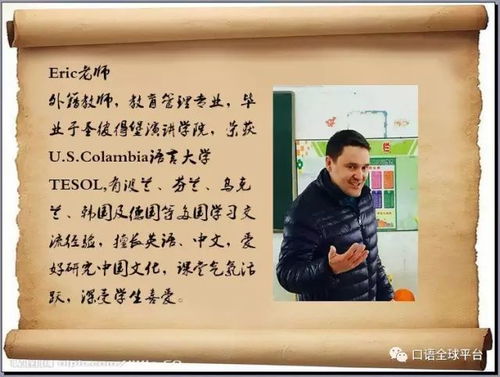 Eric老师
外籍教师，教育管理专业，毕
业于圣彼得堡演讲学院，荣获
U.S.Colambia语言大学
TESOL,有波兰、芬兰、乌克
兰、韩国及德国等多国学习交
流经验，擅长英语、中文，爱
好研究中国文化，课堂气氛活
跃，深受学生喜爱。
口语全球平台